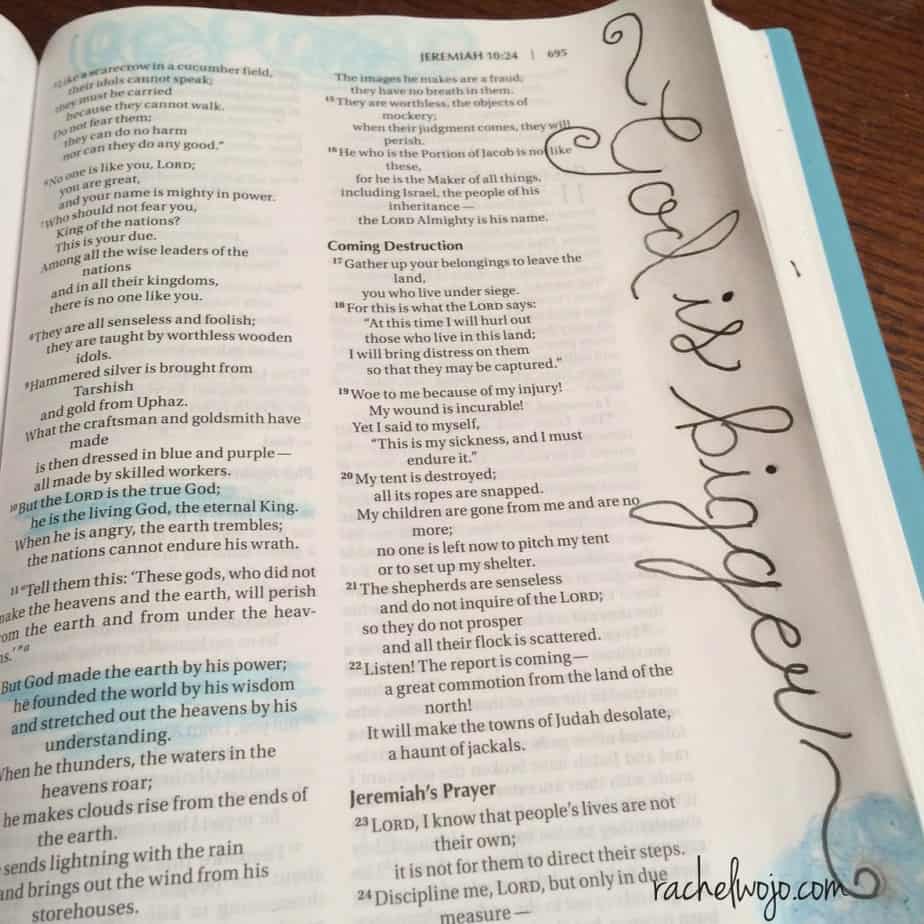 JEREMIAH 10:24 | 695
⁵Like a scarecrow in a cucumber field,
their idols cannot speak;
they must be carried
because they cannot walk.
Do not fear them;
they can do no harm
nor can they do any good.”
⁶No one is like you, LORD;
you are great,
and your name is mighty in power.
⁷Who should not fear you,
King of the nations?
This is your due.
Among all the wise leaders of the
nations
and in all their kingdoms,
there is no one like you.
⁸They are all senseless and foolish;
they are taught by worthless wooden
idols.
⁹Hammered silver is brought from
Tarshish
and gold from Uphaz.
What the craftsman and goldsmith have
made
is then dressed in blue and purple—
all made by skilled workers.
¹⁰But the LORD is the true God;
he is the living God, the eternal King.
When he is angry, the earth trembles;
the nations cannot endure his wrath.
¹¹“Tell them this: ‘These gods, who did not
make the heavens and the earth, will perish
from the earth and from under the heav-
ns.’”a
But God made the earth by his power;
he founded the world by his wisdom
and stretched out the heavens by his
understanding.
When he thunders, the waters in the
heavens roar;
he makes clouds rise from the ends of
the earth.
sends lightning with the rain
and brings out the wind from his
storehouses.
The images he makes are a fraud;
they have no breath in them.
¹⁵They are worthless, the objects of
mockery;
when their judgment comes, they will
perish.
¹⁶He who is the Portion of Jacob is not like
these,
for he is the Maker of all things,
including Israel, the people of his
inheritance—
the LORD Almighty is his name.
Coming Destruction
¹⁷Gather up your belongings to leave the
land,
you who live under siege.
¹⁸For this is what the LORD says:
“At this time I will hurl out
those who live in this land;
I will bring distress on them
so that they may be captured.”
¹⁹Woe to me because of my injury!
My wound is incurable!
Yet I said to myself,
“This is my sickness, and I must
endure it.”
²⁰My tent is destroyed;
all its ropes are snapped.
My children are gone from me and are no
more;
no one is left now to pitch my tent
or to set up my shelter.
²¹The shepherds are senseless
and do not inquire of the LORD;
so they do not prosper
and all their flock is scattered.
²²Listen! The report is coming—
a great commotion from the land of the
north!
It will make the towns of Judah desolate,
a haunt of jackals.
Jeremiah’s Prayer
²³LORD, I know that people’s lives are not
their own;
it is not for them to direct their steps.
²⁴Discipline me, LORD, but only in due
measure—
God is bigger
rachelwojo.com